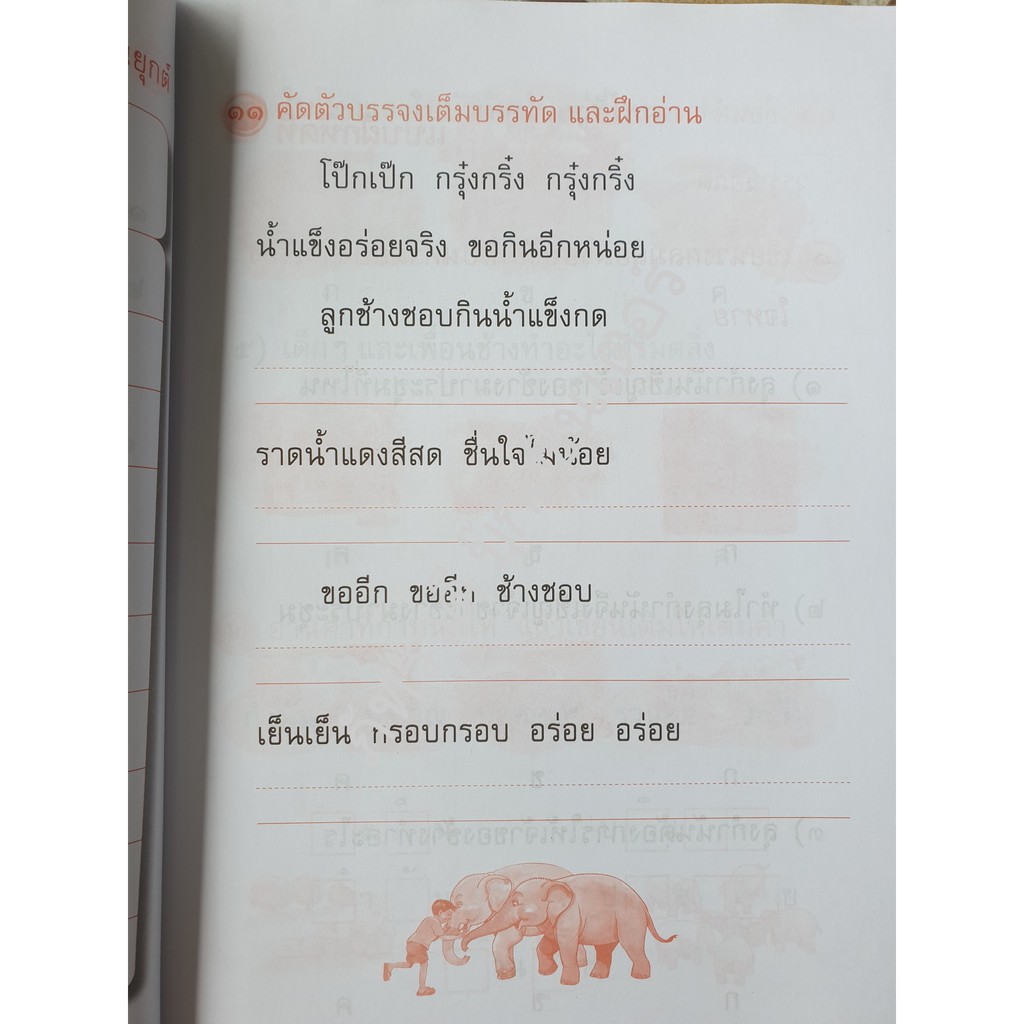 ะยุกต์
๑๑ คัดตัวบรรจงเต็มบรรทัด และฝึกอ่าน
โป๊กเป๊ก กรุ๋งกริ๋ง กรุ๋งกริ๋ง
น้ำแข็งอร่อยจริง ขอกินอีกหน่อย
ลูกช้างชอบกินน้ำแข็งกด
ราดน้ำแดงสีสด ชื่นใจไม่น้อย
ขออีก ขออีก ช้างชอบ
เย็นเย็น กรอบกรอบ อร่อย อร่อย